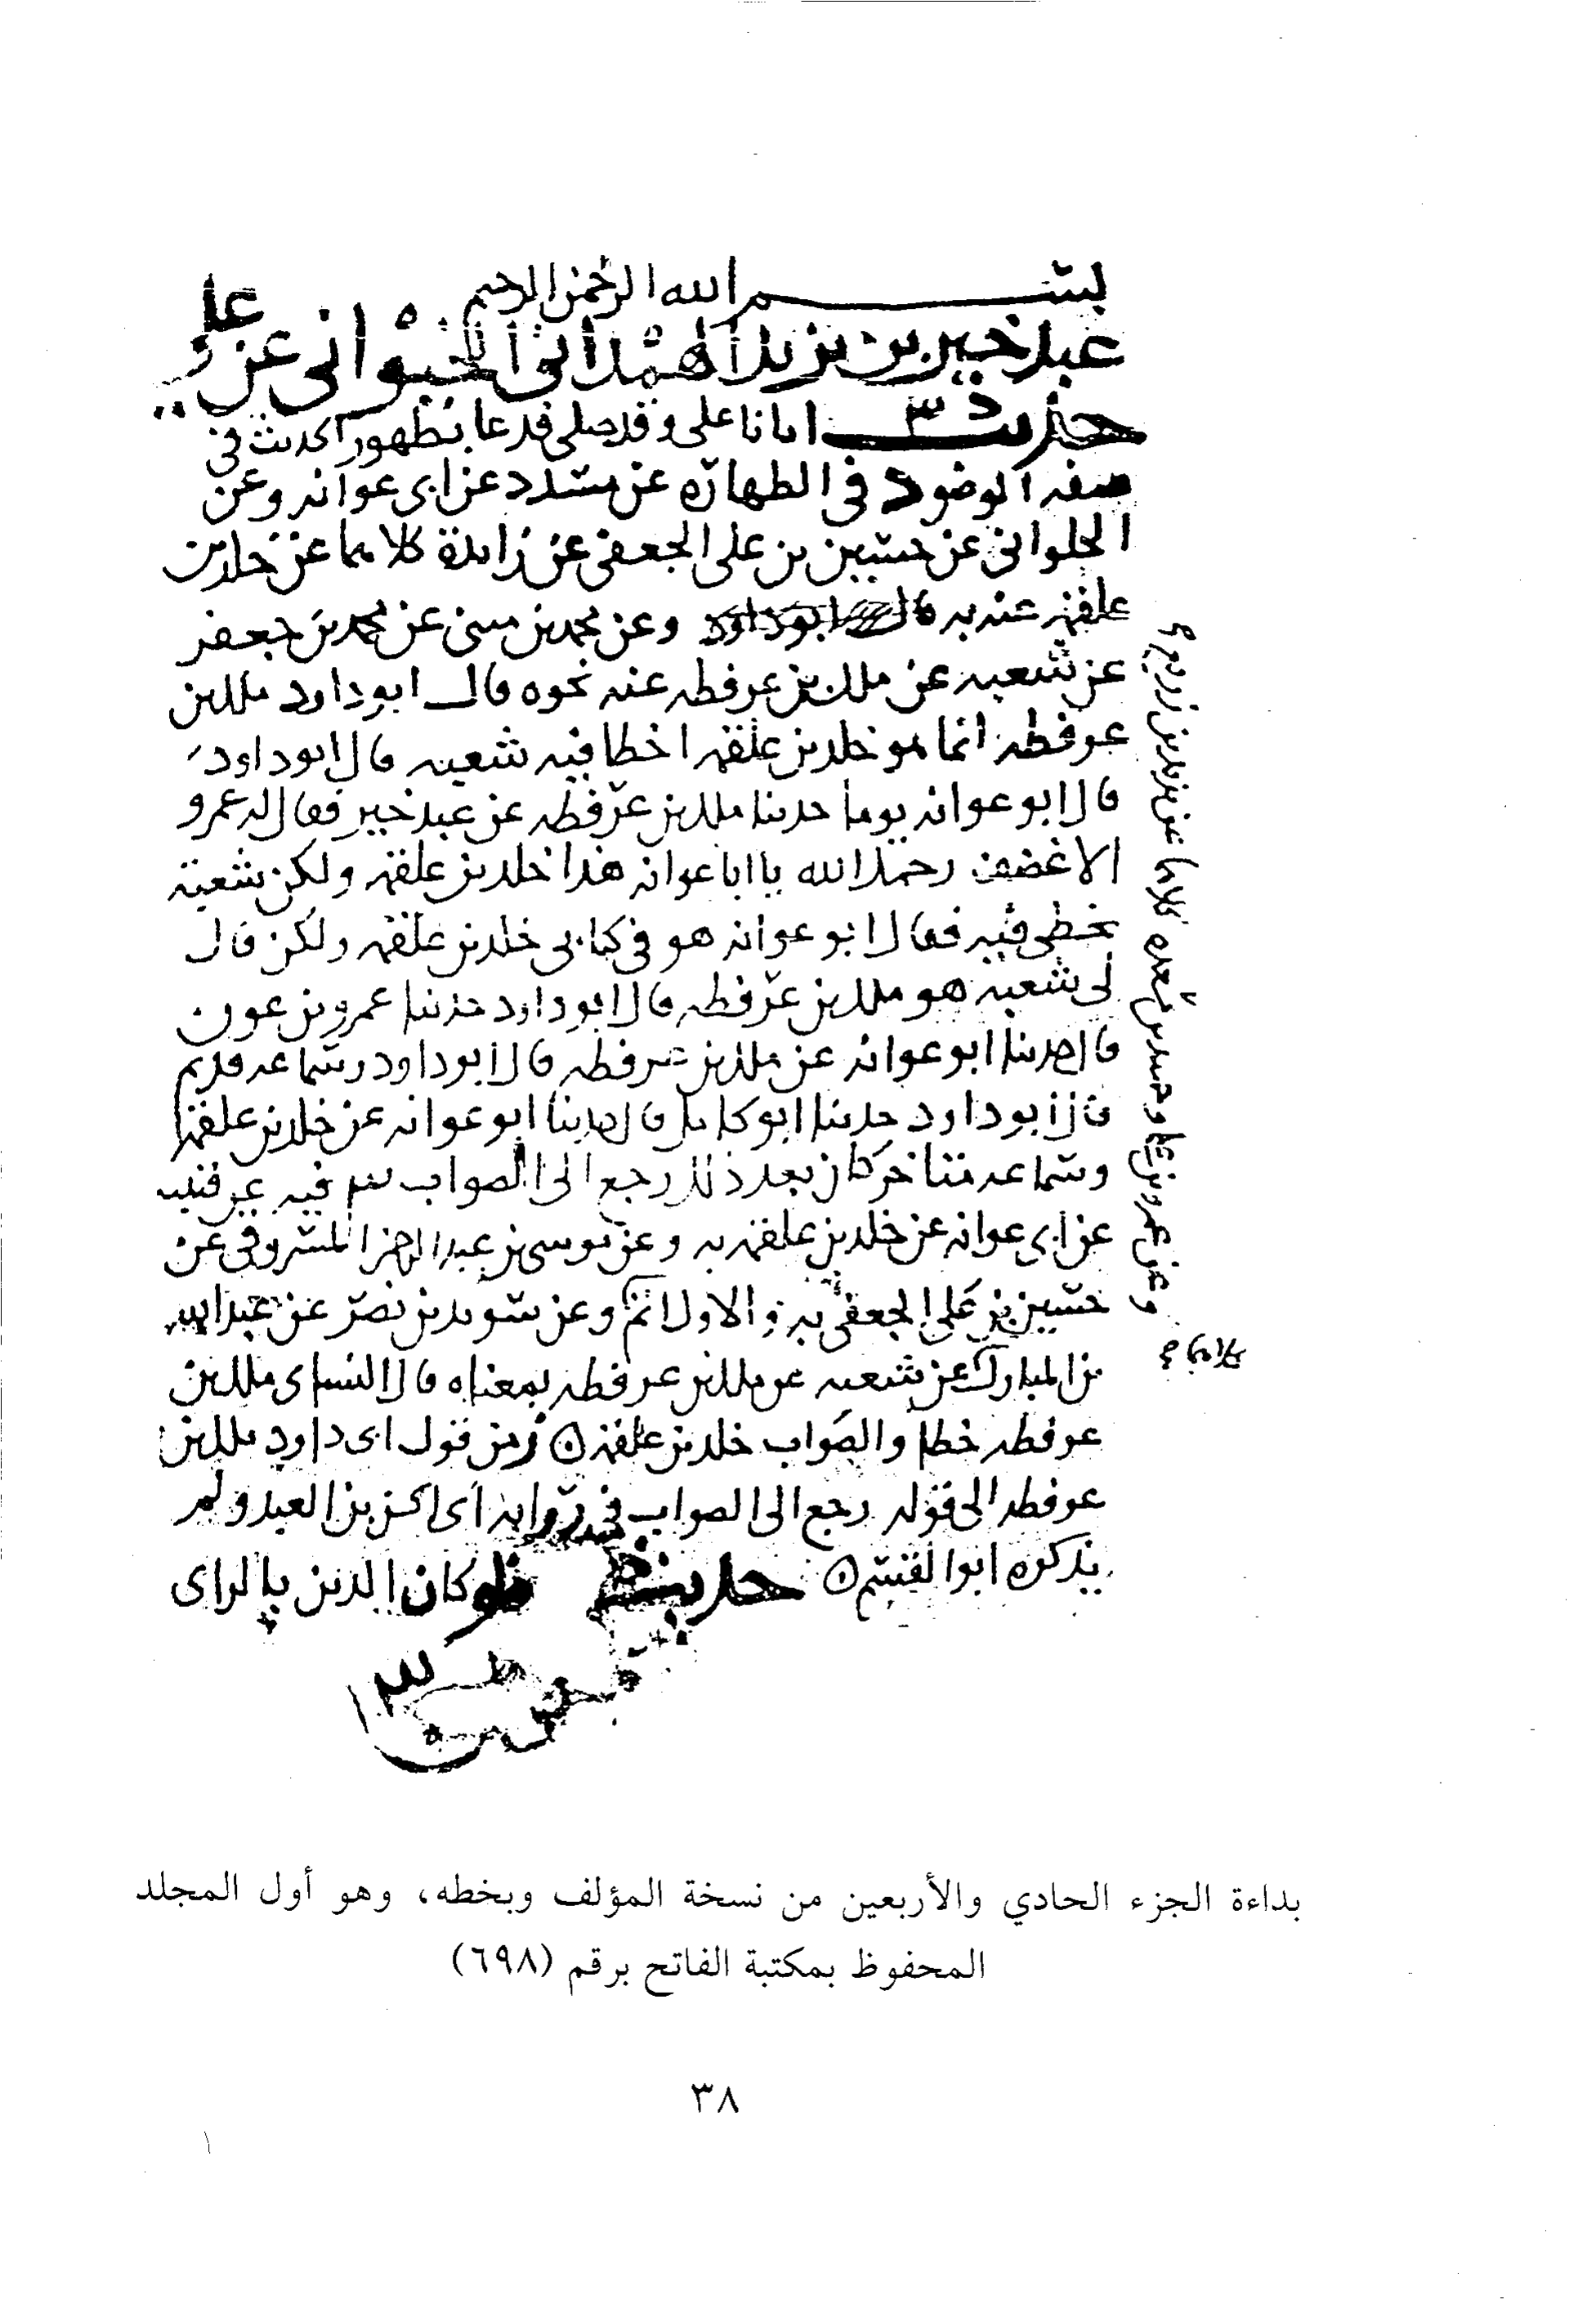 بسم الله الرحمن الرحيم
عبد خير بن يزيد الهمداني الخيواني عن علي
حديث د س اتانا علي وقد صلى فدعا بطهور الحديث في
صفة الوضوء د في الطهارة عن مسدد عن ابي عوانه وعن
الحلواني عن حسين بن علي الجعفي عن زايدة كلاهما عن خلد بن
علقمه عنه به قال ابو داود وعن محمد بن مثنى عن محمد بن جعفر
عن شعبه عن ملك بن عرفطه عنه نحوه قال ابو داود ملك بن
عرفطه انما هو خلد بن علقمه اخطا فيه شعبه قال ابو داود
قال ابو عوانه يوما حدثنا ملك بن عرفطه عن عبد خير فقال له عمرو
الاغضف رحمك الله يا ابا عوانه هذا خلد بن علقمه ولكن شعبة
يخطى فيه فقال ابو عوانه هو في كتابي خلد بن علقمه ولكن قال
لي شعبه هو ملك بن عرفطه قال ابو داود حدثنا عمرو بن عون
قال حدثنا ابو عوانه عن ملك بن عرفطه قال ابو داود وسماعه قديم
قال ابو داود حدثنا ابو كامل قال حدثنا ابو عوانه عن خلد بن علقمه
وسماعه متاخر كان بعد ذلك رجع الى الصواب س فيه عن قتيبه
عن ابي عوانه عن خلد بن علقمه به وعن موسى بن عبد الرحمن المسروقي عن
حسين بن علي الجعفي به والاول اتم وعن سويد بن نصر عن عبد الله
بن المبارك عن شعبه عن ملك بن عرفطه بمعناه قال النساي ملك بن
عرفطه خطا والصواب خلد بن علقمه ز من قول ابي داود ملك بن
عرفطه الى قوله رجع الى الصواب في رواية ابي الحسن بن العبد ولم
يذكره ابو القسم حديث لو كان الدين بالراي
وعن عمرو بن علي وحميد بن مسعده كلاهما عن يزيد بن زريع
كلاهما
بداءة الجزء الحادي والأربعين من نسخة المؤلف وبخطه، وهو أول المجلد
المحفوظ بمكتبة الفاتح برقم (٦٩٨)
٣٨